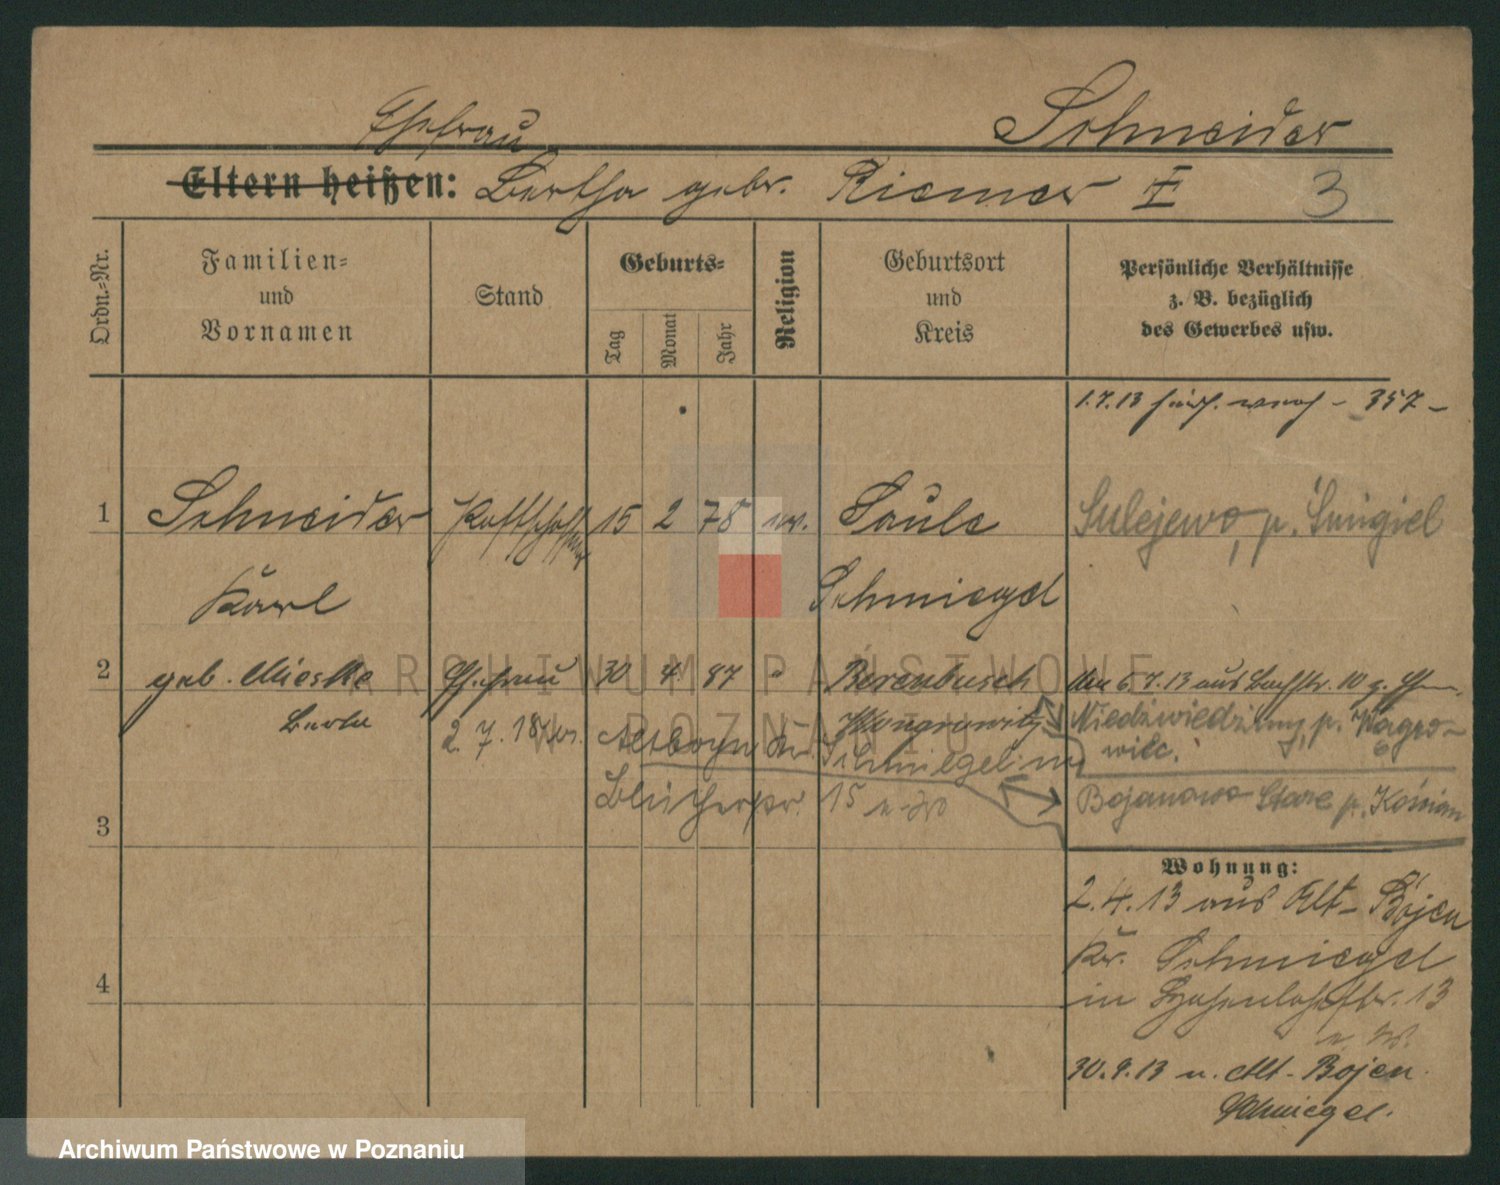 Schneider
Ehefrau
Eltern heißen: Bertha gebr. Riemer II 3
Ordn.-Nr.
Familien-
und
Vornamen
Stand
Geburts-
Tag
Monat
Jahr
Religion
Geburtsort
und
Kreis
Persönliche Verhältnisse
z. B. bezüglich
des Gewerbes usw.
1.7.13 357 -
1 Schneider 15 2 78 ev. Saule Sulejewo, p. Śmigiel
Karl Schmiegel
2 geb. Mieske Ehefrau 30 4 87 " Berenbusch den 5.7.13 aus 10 z.
Berta Wongrowitz Niedźwiedziny, p. Wągro-
wiec.
2. 7. 18 Altboyen Kr. Schmiegel
Blücherstr. 15 n. W Bojanowo Stare p. Kościan
3
Wohnung:
2.4.13 aus Alt-Bojen
Kr. Schmiegel
4
in Hohenlohestr. 13
n. W.
30.9.13 n. Alt-Bojen
Schmiegel.
ARCHIWUM PAŃSTWOWE
W POZNANIU
Archiwum Państwowe w Poznaniu